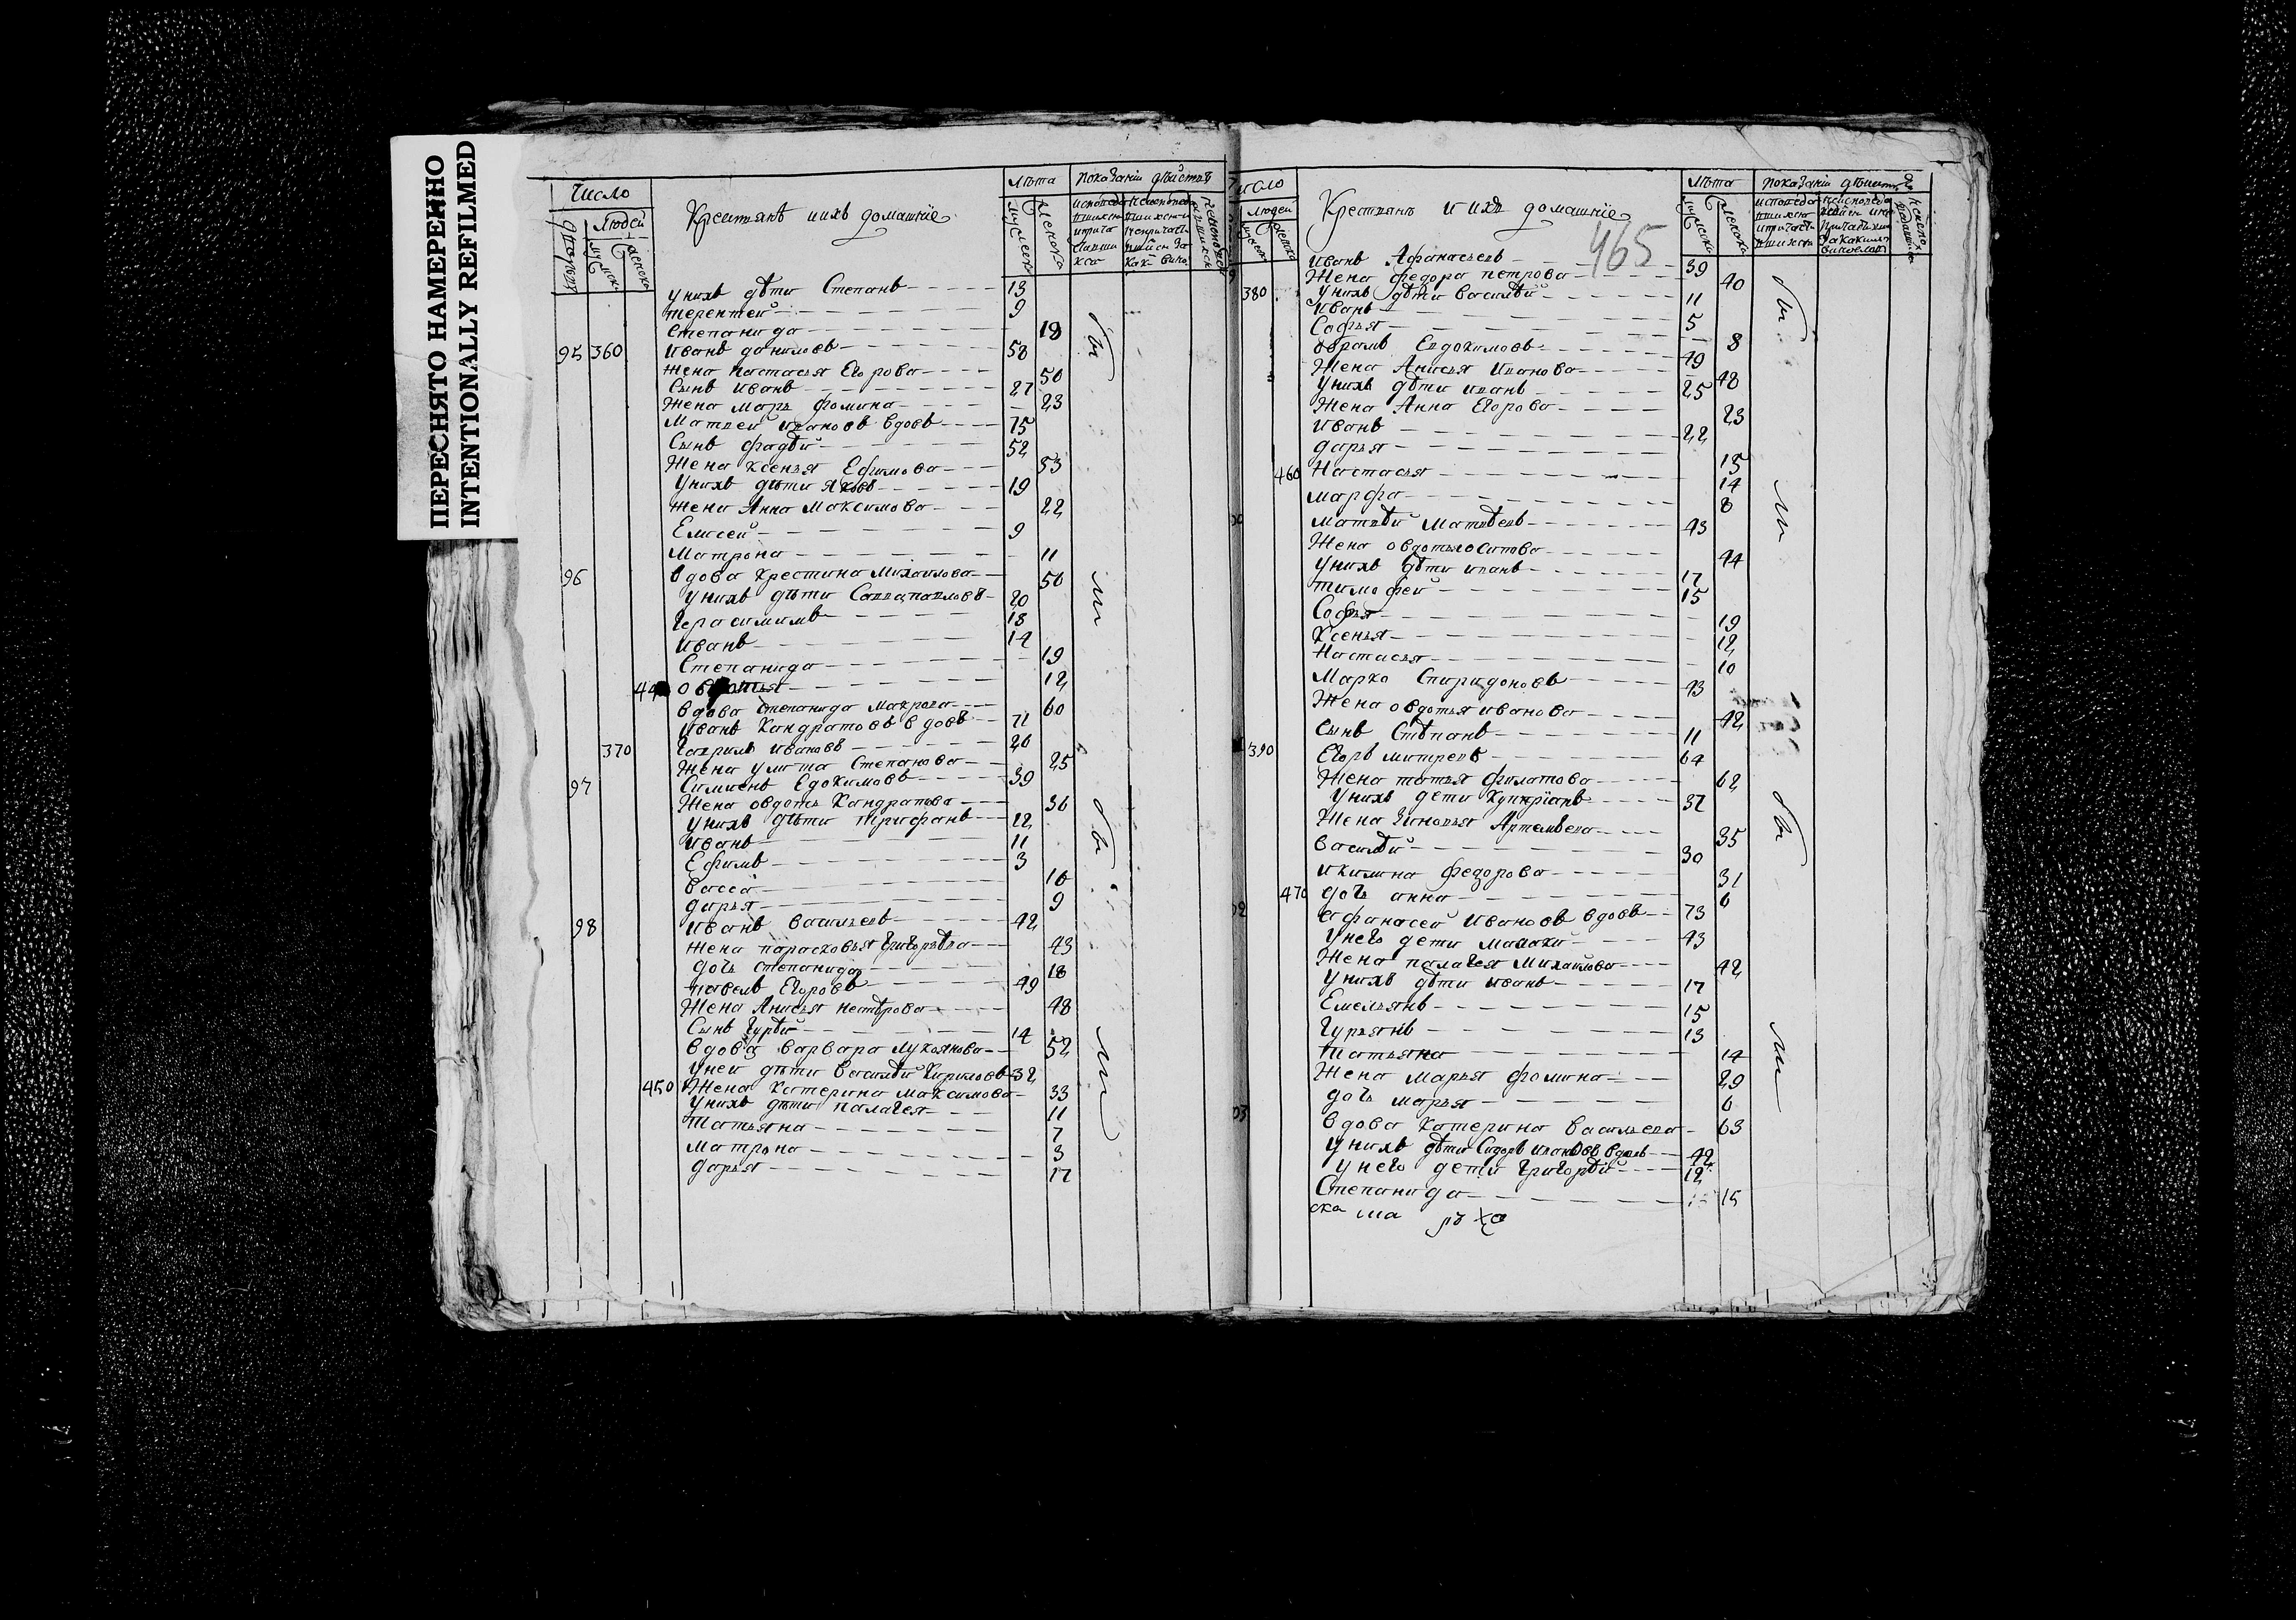 ПЕРЕСНЯТО НАМЕРЕННО
INTENTIONALLY REFILMED
Число
Людей
Крестьянѣ иихъ домашние
Лѣта
показании дѣйства
унихъ дѣти Степанъ 13
терентей 9
степанида 18
95 360 иванъ даниловъ 58
жена настасья Егорова 50
сынъ иванъ 27
жена марь фомина 23
матвеи ивановъ вдовъ 75
сынъ фадѣй 52
жена ксенья Ефимова 53
унихъ дѣти яковъ 19
жена Анна максимова 22
Елисей 9
матрона 11
96 вдова крестина михаилова 50
унихъ дѣти Савва павловъ 20
герасимъ 18
иванъ 14
степанида 19
12
вдова степанида 60
иванъ кандратовъ вдовъ 71
370 гаврилъ ивановъ 26
жена улита степанова 25
97 симионъ Едокимовъ 39
жена овдоть кандратова 36
унихъ дѣти трифанъ 12
иванъ 11
Ефимъ 3
васса 16
дарья 9
98 иванъ васильевъ 42
жена парасковья григорьева 43
дочь степанида 18
павелъ Егоровъ 49
жена Анисья нестѣрова 48
сынъ гурѣй 14
вдова варвара лукоянова 52
унеи дѣти василѣй кириловъ 32
450 жена катерина максимова 33
унихъ дѣти палагея 11
татьяна 7
матрона 3
дарья 17
число
людей
Крестьянъ и ихъ домашние
465
Лѣта
показании дѣйства
иванъ Афанасьевъ 39
жена федора петрова 40
380 унихъ дѣти василѣй 11
иванъ 5
Софья 8
аврамъ Евдокимовъ 49
жена Анисья иванова 48
унихъ дѣти иванъ 25
жена Анна Егорова 23
иванъ 22
дарья 15
460 настасья 14
марфа 8
матвѣй матвѣевъ 43
жена овдотья осипова 44
унихъ дѣти иванъ 17
тимофей 15
Софья 19
ксенья 12
настасья 10
марко спиридоновъ 43
жена овдотья иванова 42
сынъ Стѣпанъ 11
390 Егоръ митревъ 64
жена татья филатова 62
унихъ дети куприянъ 37
жена зиновья Артемьева 35
василѣй 30
акилина федорова 31
470 дочь анна 6
02 афанасеи ивановъ вдовъ 73
унего дети малахи 43
жена палагея михайлова 42
унихъ дѣти иванъ 17
Емельянъ 15
гурьянъ 13
татьяна 14
жена марья фомина 29
дочь марья 6
03 вдова катерина васильева 63
унихъ дѣти Сидоръ ивановъ вдовъ 42
унего дети григорѣй 12
степанида 15